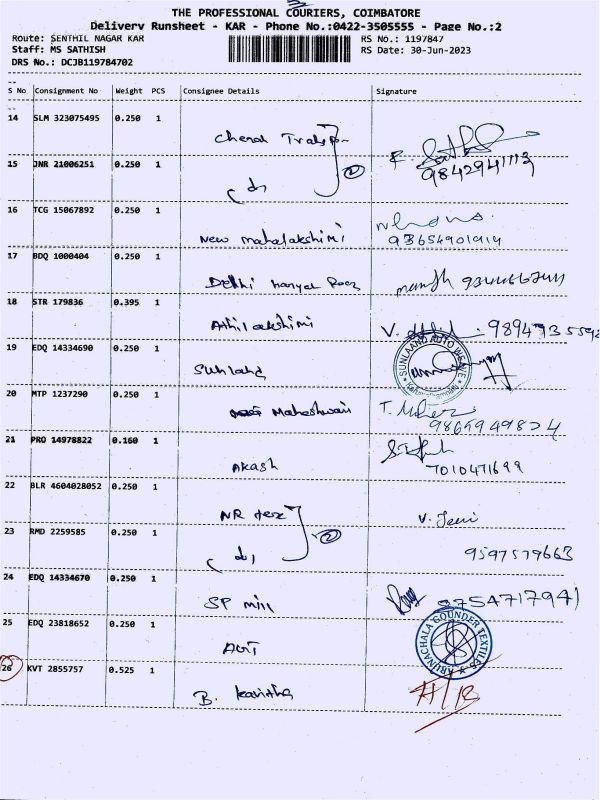 THE PROFESSIONAL COURIERS, COIMBATORE
Delivery Runsheet - KAR - Phone No.:0422-3505555 - Page No.:2
Route: SENTHIL NAGAR KAR RS No.: 1197847
Staff: MS SATHISH RS Date: 30-Jun-2023
DRS No.: DCJB119784702
S No Consignment No Weight PCS Consignee Details Signature
14 SLM 323075495 0.250 1
15 JNR 21006251 0.250 1 9842941113
16 TCG 15067892 0.250 1
New mahalakshimi 93654901914
17 BDQ 1000404 0.250 1
Delhi
18 STR 179836 0.395 1
Athilakshimi
19 EDQ 14334690 0.250 1
Sunland SUNLAAND AUTO WEAVE
20 MTP 1237290 0.250 1
Maheshwari
21 PRO 14978822 0.160 1
Akash 7010471699
22 BLR 4604028052 0.250 1
NR tex V. Jeni
23 RMD 2259585 0.250 1
2 9597579663
24 EDQ 14334670 0.250 1
SP mill 9754717941
25 EDQ 23818652 0.250 1
ARUNACHALA GOUNDER TEXTILES
26 KVT 2855757 0.525 1
B. kavitha